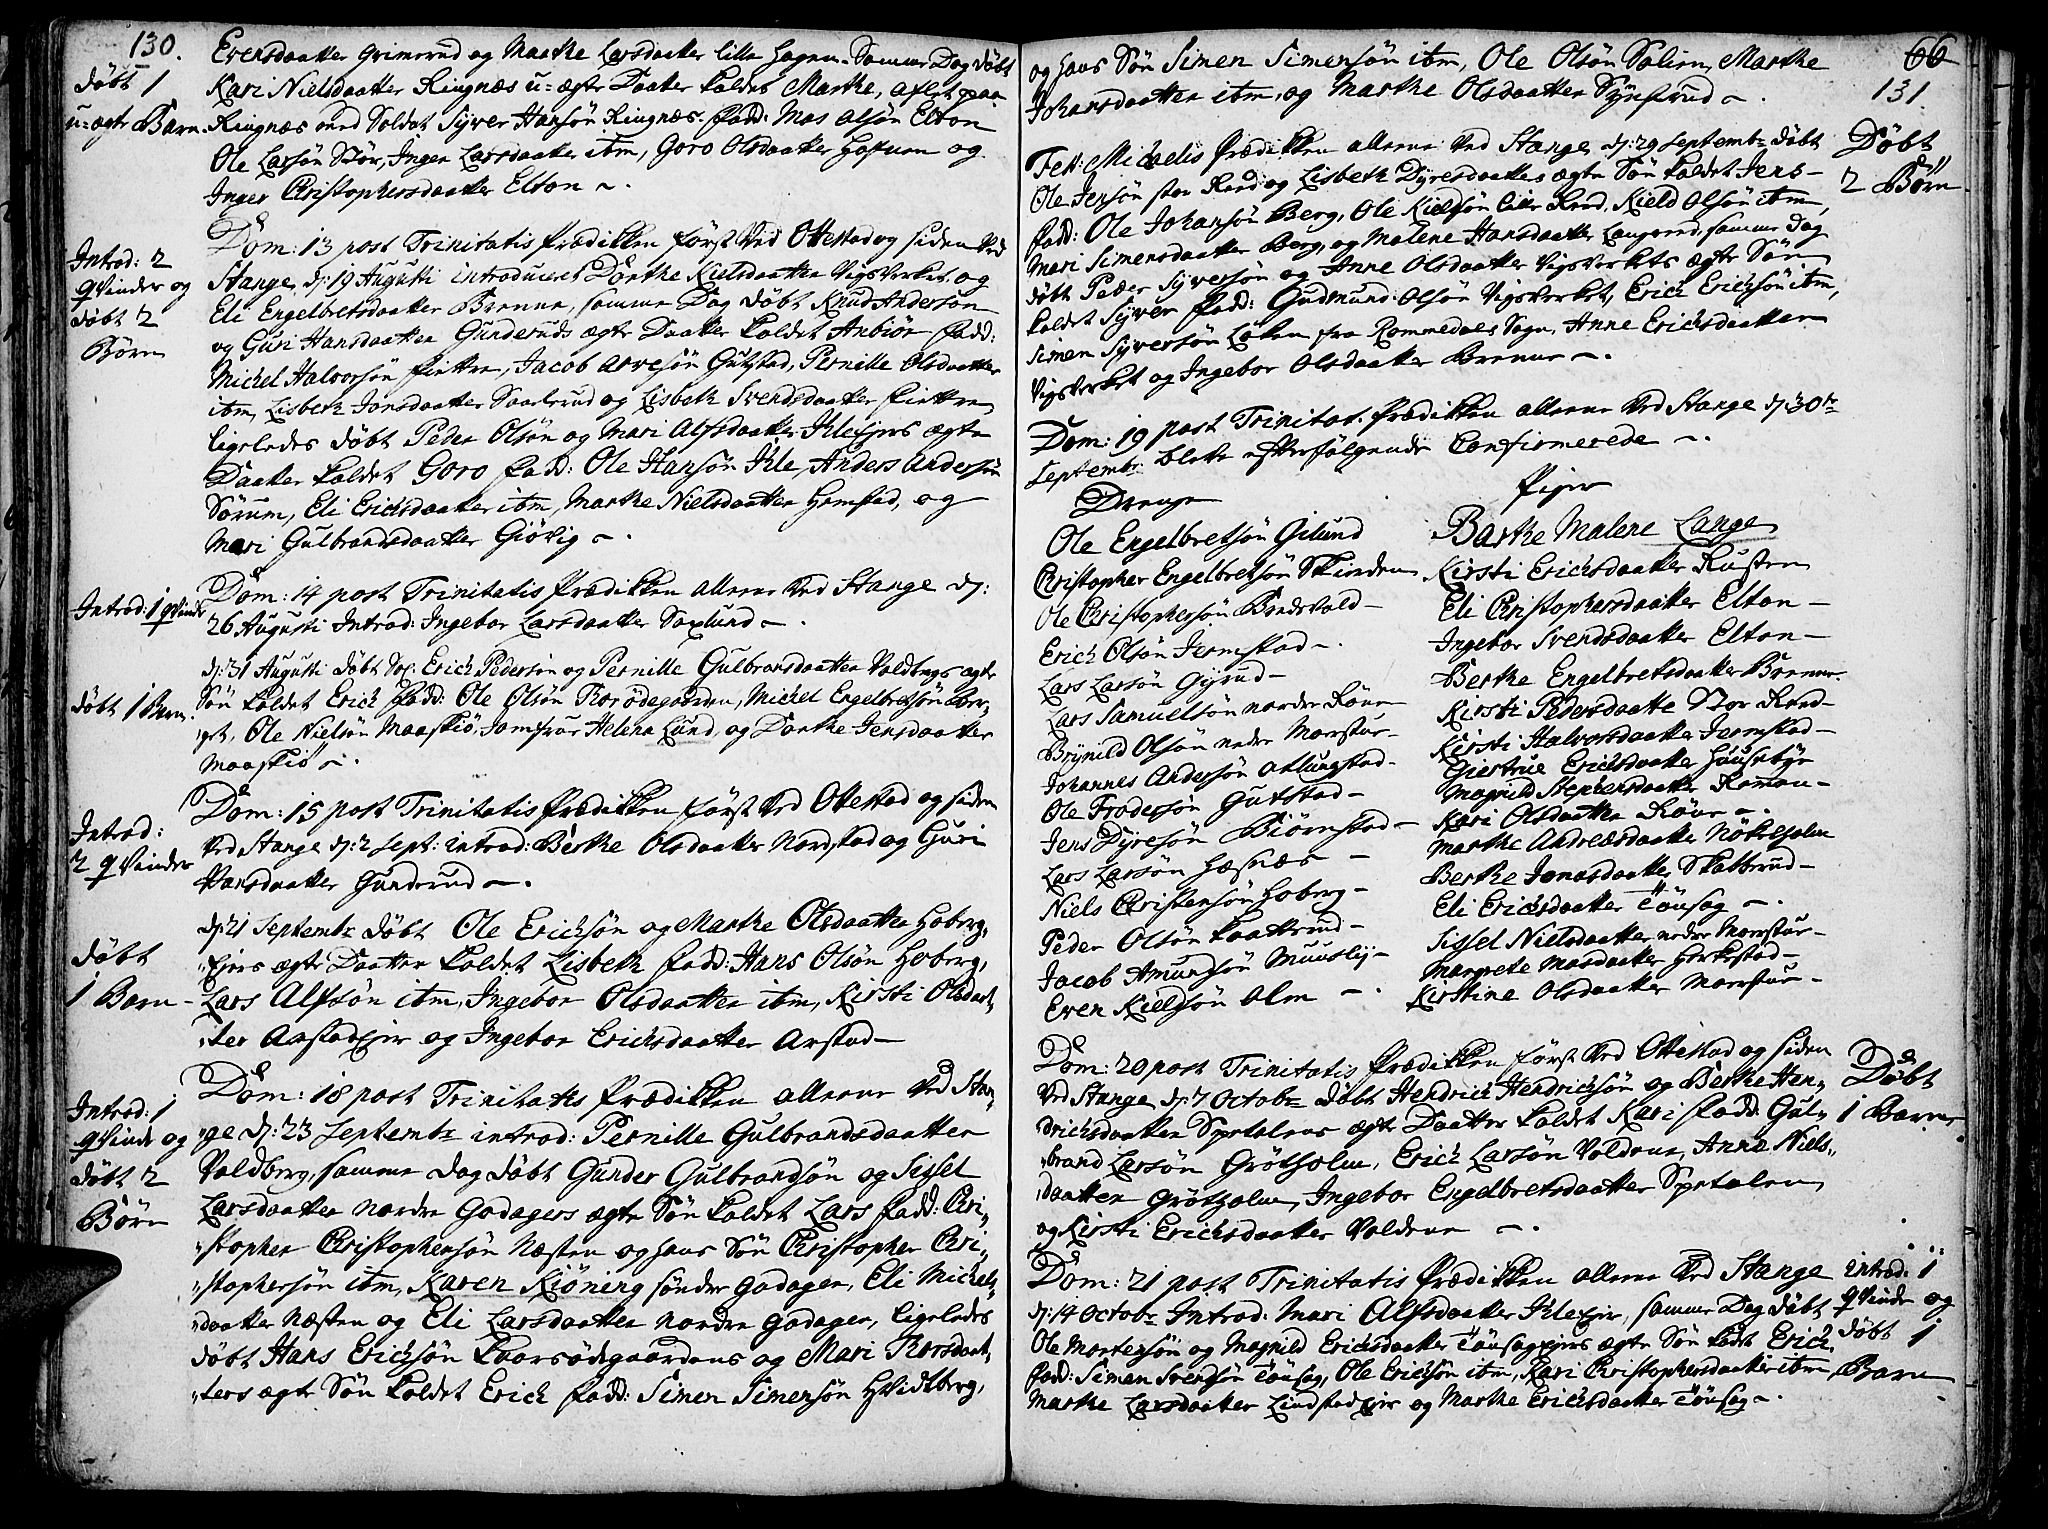 130.
Evensdaatter Grimerud og Marthe Larsdaatter lille Hagen. Samme Dag døbt
døbt 1
u-ægte Barn.
Kari Nielsdaatter Ringnæs u-ægte Daater kaldet Marthe, aflet paa
Ringnæs med Soldat Syver Hansøn Ringnæs. fadd: Mas Olsøn Elton
Ole Larsøn Stør, Inger Larsdaatter ibm, Goro Olsdaatter Hofuem og
Inger Christophersdaatter Elton.
Introd: 2
qvinder og
døbt 2
Børn
Dom: 13 post Trinitatis Prædikken først ved Ottestad og siden ved
Stange, d: 19 Augusti introduceret Dorthe Nielsdaatter Vigsverket, og
Eli Engelbretsdaatter Brenne, samme Dag døbt Knud Andersøn
og Guri Hansdaatter Gunderuds ægte Daatter kaldet Anbiør fadd:
Michel Halvorsøn Fiettre, Jacob Arvesøn Gutstad, Pernille Olsdaatter
ibm, Lisbeth Jonsdaatter Saaterud og Lisbeth Svendsdaatter Fiettre,
ligeledes døbt Peder Olsøn og Mari Alfsdaatter Ihle Ejers ægte
Daatter kaldet Goro fadd: Ole Hansøn Ihle, Anders Andersøn
Sørum, Eli Erichsdaatter ibm, Marthe Nielsdaatter Hemstad, og
Mari Gulbrandsdaatter Giøvig.
Introd: 1 qvinde
Dom: 14 post Trinitatis Prædikken allene ved Stange d:
26 Augusti Introd: Ingebor Larsdaatter Saxlund.
døbt 1 Barn.
d: 31 Augusti døbt Sr: Erich Pedersøn og Pernille Gulbransdaatter Voldbergs ægte
Søn kaldet Erich fadd: Ole Olsøn Rorødegaarden, Michel Engelbretsøn Ber-
get, Ole Nielsøn Maaskiø, Jomfrue Helena Lund, og Dorthe Jensdaatter
Maaskiø.
Introd:
2 qvinder
Dom: 15 post Trinitatis Prædikken først ved Ottestad og siden
ved Stange d: 2 Sept: introd: Berthe Olsdaatter Nordstad og Guri
Hansdaatter Gunderud.
døbt
1 Barn
d: 21 Septembr døbt Ole Erichsøn og Marthe Olsdaatter Hoberg-
Ejers ægte Daatter kaldet Lisbeth fadd: Hans Olsøn Hoberg,
Lars Alfsøn ibm, Ingebor Olsdaatter ibm, Kirsti Olsdaat-
ter Arstadejer og Ingebor Erichsdaatter Arstad
Introd: 1
qvinde og
døbt 2
Børn
Dom: 18 post Trinitatis Prædikken allene ved Stan-
ge d: 23 Septembr introd: Pernille Gulbrandsdaatter
Voldberg, samme Dag døbt Gunder Gulbrandsøn og Sissel
Larsdaatter Nordre Godagers ægte Søn kaldet Lars fadd: Chri-
stopher Christophersøn Næsten og hans Søn Christopher Chri-
stophersøn ibm, Karen Kiøning søndre Godager, Eli Michels-
daatter Næsten og Eli Larsdaatter Nordre Godager, ligeledes
døbt Hans Erichsøn Kaarsødegaardens og Mari Thorsdaat-
ters ægte Søn kaldet Erich fadd: Simen Simensøn Hvidtberg,
66
131.
og hans Søn Simen Simensøn ibm, Ole Olsøn Solien, Marthe
Johansdaatter ibm, og Marthe Olsdaatter Synserud.
Døbt
2 Børn
Fest: Michaelis Prædikken allene ved Stange d: 29 Septembr døbt
Ole Jensøn stor Rend og Lisbeth Dyresdaatters ægte Søn kaldet Jens
fadd: Ole Johansøn Berg, Ole Kieldsøn lille Rend, Kield Olsøn ibm,
Mari Simensdaatter Berg, og Malene Hansdaatter Langerud, samme Dag
døbt Peder Syversøn og Anne Olsdaatter Vigsverkets ægte Søn
kaldet Syver fadd: Gudmund Olsøn Vigsverket, Erich Erichsøn ibm,
Simen Syversøn Løken fra Rommedals Sogn, Anne Erichsdaatter
Vigsverket og Ingebor Olsdaatter Brenne.
Dom: 19 post Trinitat: Prædikken allene ved Stange d: 30te
Septembr bleve efterfølgende Confirmerede.
Drenge
Ole Engelbretsøn Gilund
Christopher Engelbretsøn Skinden
Ole Christophersøn Bredvold
Erich Olsøn Jermstad
Lars Larsøn Gyrud
Lars Samuelsøn nordre Røne
Brynild Olsøn nedre Morstue
Johannes Andersøn Atlungstad
Ole Frodesøn Gutstad
Jens Dyresøn Biørnstad
Lars Larsøn Hæsnæs
Niels Christensøn Hoberg
Peder Olsøn Kaatterud
Jacob Amundsøn Muuslij
Even Kieldsøn Alm
Piger
Barthe Malene Lange
Kirsti Erichsdaatter Rusten
Eli Christophersdaatter Elton
Ingebor Svendsdaatter Elton
Berthe Engelbretsdaatter Brenne
Kirsti Pedersdaatter Stor Rend
Kirsti Halvorsdaatter Jermstad
Giertrue Erichsdaatter Housebye
Magnild Stephensdaatter Roman
Kari Olsdaatter Røne
Marthe Andreæsdaatter Nøkleholm
Berthe Jonasdaatter Skatterud
Eli Erichsdaatter Tousag
Sissel Nielsdaatter nedre Morstue
Margrete Masdaatter Horkestad
Kirstine Olsdaatter Morstue
Døbt
1 Barn
Dom: 20 post Trinitatis Prædikken først ved Ottestad og siden
ved Stange, d: 7 Octobr døbt Hendrich Hendrichsøn og Berthe Hen-
drichsdaatter Spetalens ægte Daatter kaldet Kari fadd: Gul-
brand Larsøn Grøtholm, Erich Larsøn Voldene, Anne Niels-
daatter Grøtholm, Ingebor Engelbretsdaatter Spetalen
og Kirsti Erichsdaatter Voldene.
introd: 1
qvinde og
døbt 1
Barn
Dom: 21 post Trinitatis Prædikken allene ved Stange
d: 14 Octobr Introd: Mari Alfsdaatter Ihle Ejer, samme Dag døbt
Ole Mortensøn og Magnild Erichsdaatter Tousagejers ægte Søn kaldt Erich
fadd: Simen Svensøn Tousag, Ole Erichsøn ibm, Kari Christophersdaatter ibm
Marthe Larsdaatter Lindstadejer og Marthe Erichsdaatter Tousag.